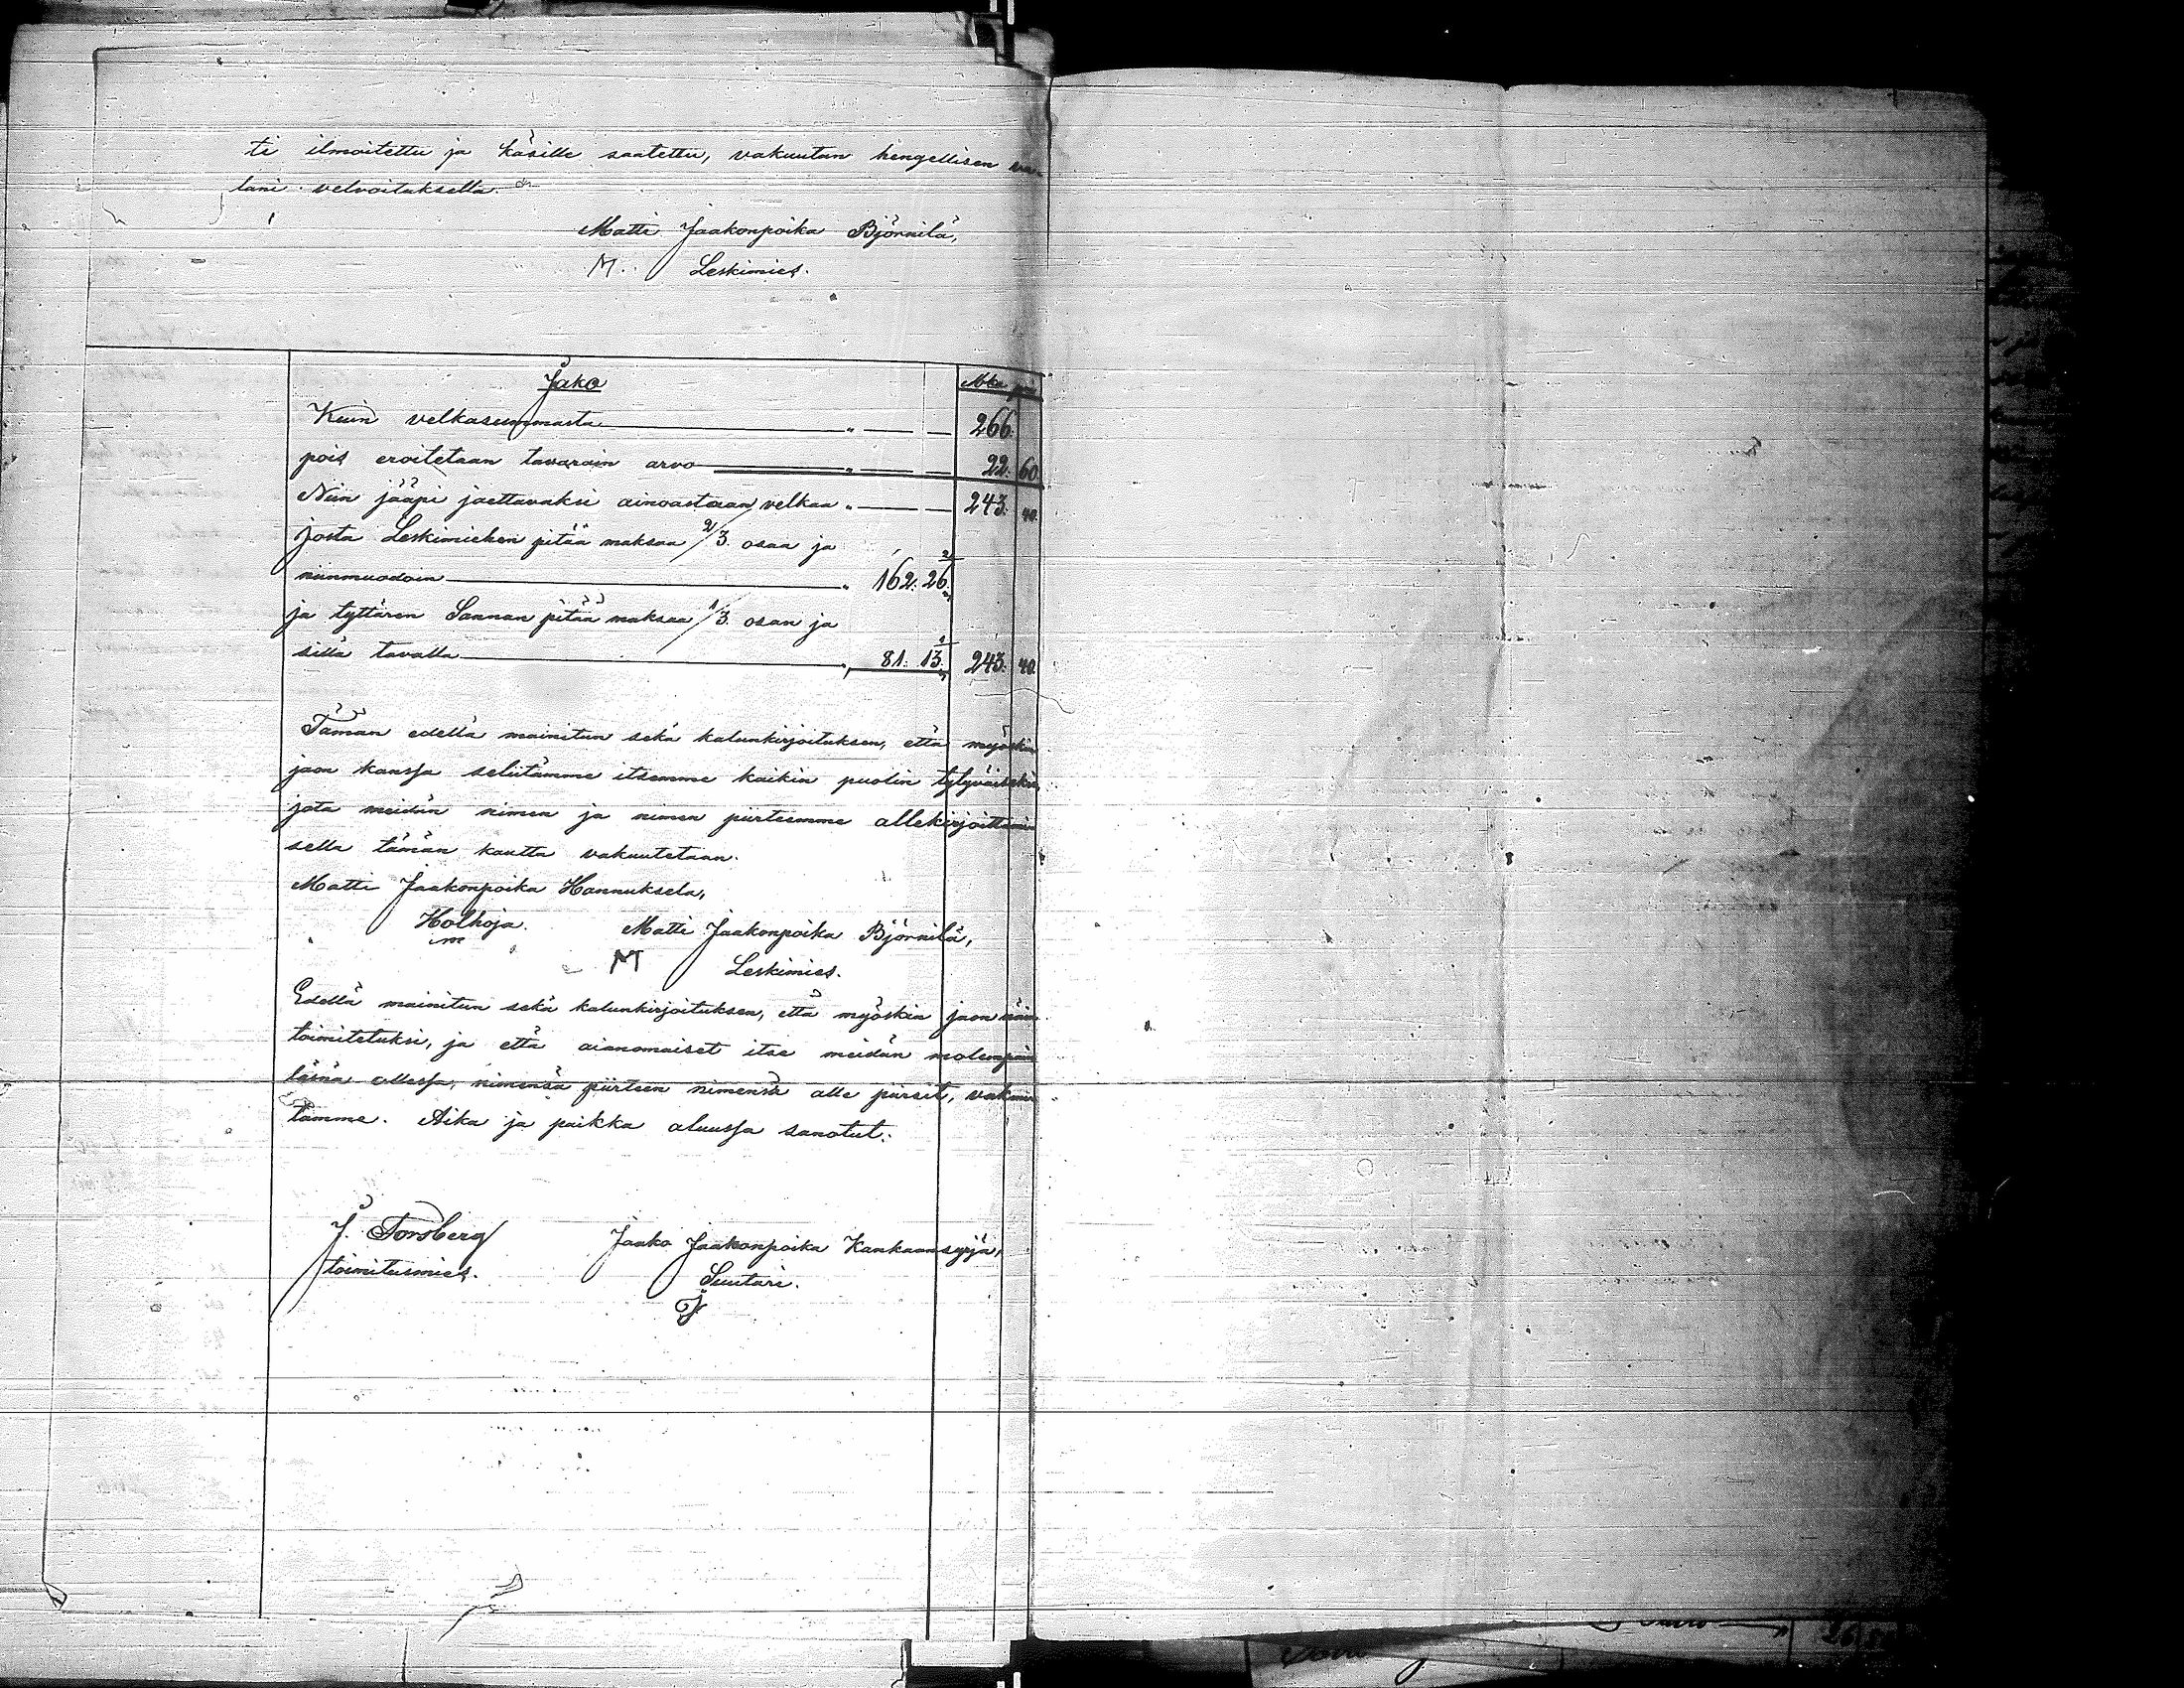 ti ilmoitettu ja käsille saatettu, vakuutan hengellisen va-
lani velvoituksella.
Matti Jaakonpoika Björnilä,
M. Leskimies.
Jako
Mka pni
Kuin velkasummasta " 266.
pois eroitetaan tavarain arvo " 22. 60
Niin jääpi jaettavaksi ainoastaan velkaa " 243. 40.
josta Leskimiehen pitää maksaa 2/3 osaa ja
niinmuodoin " 162. 26 2/3
ja tyttären Sannan pitää maksaa 1/3 osan ja
sillä tavalla " 81. 13 1/3 243. 40.
Tämän edellä mainitun sekä kalunkirjoituksen, että myöskin
jaon kanssa seliitämme itsemme kaikin puolin tytyväiseksi
jota meidän nimen ja nimen piirteemme allekirjoittamisella
sella tämän kautta vakuutetaan.
Matti Jaakonpoika Hannuksela,
Holhoja.
Matti Jaakonpoika Björnilä,
M Leskimies.
Edellä mainitun sekä kalunkirjoituksen, että myöskin jaon näin
toimitetuksi, ja että asianomaiset itse meidän molempain
läsnä ollessa, nimensä piirteen nimensä alle piirsit, vakuu
tamme. Aika ja paikka aluussa sanotut.
J. Forsberg
toimitusmies.
Jaako Jaakonpoika Kankaansyrjä,
Suutari.